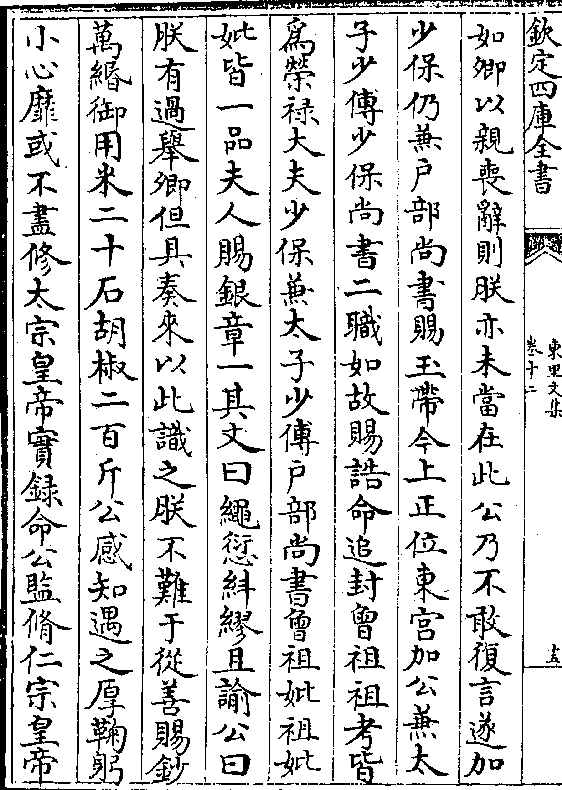 欽定四庫全書
東里文集
卷十二
十五
如卿以親喪辭則朕亦未當在此公乃不敢復言遂加
少保仍兼戶部尚書賜玉帶今上正位東宮加公兼太
子少傅少保尚書二職如故賜誥命追封曾祖祖考皆
為榮禄大夫少保兼太子少傅戶部尚書曾祖妣祖妣
妣皆一品夫人賜銀章一其文曰繩愆糾繆且諭公曰
朕有過舉卿但具奏來以此識之朕不難于從善賜鈔
萬緡御用米二十石胡椒二百斤公感知遇之厚鞠躬
小心靡或不盡修太宗皇帝實録命公監脩仁宗皇帝